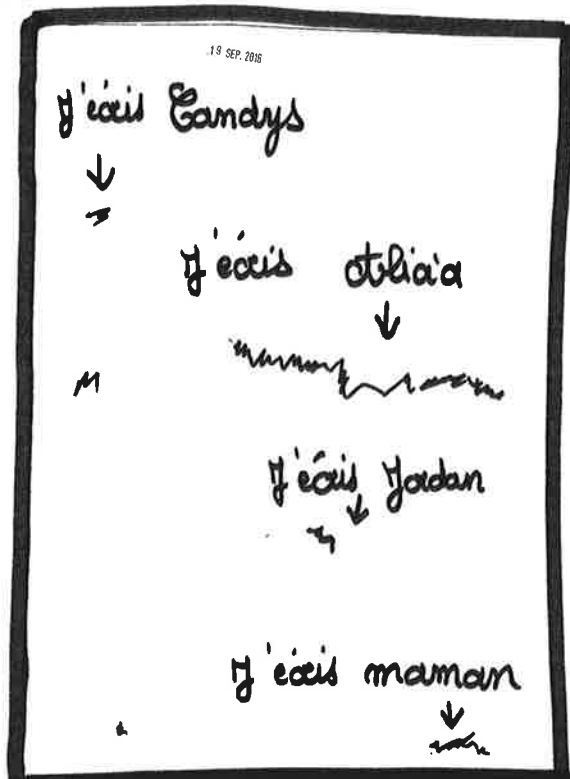 19 SEP. 2016
J'écris Candys
J'écris
J'écris Jordan
J'écris maman